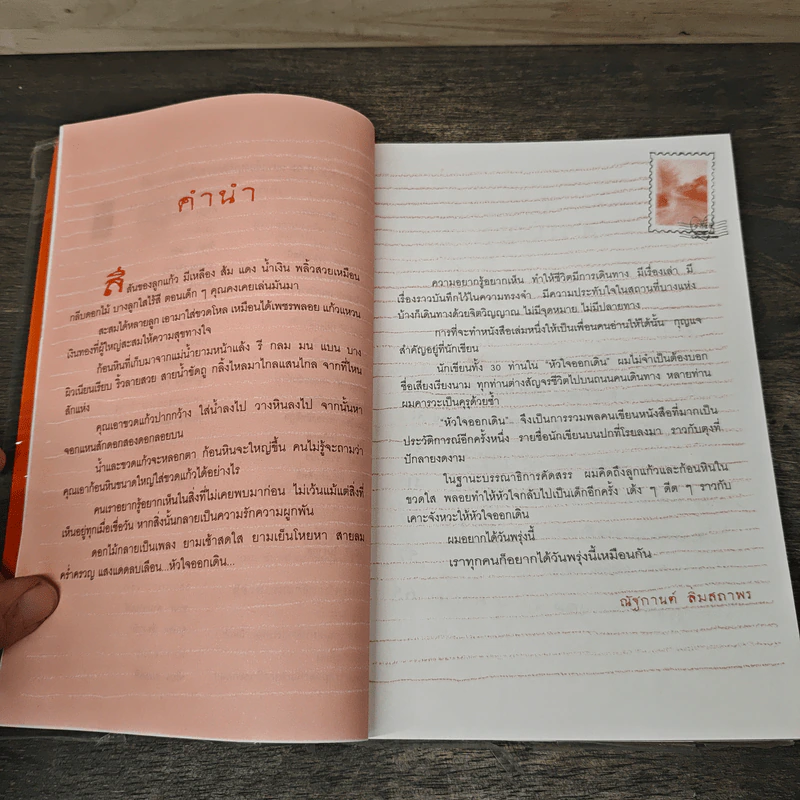 คำนำ
สีสันของลูกแก้ว มีเหลือง ส้ม แดง น้ำเงิน พลิ้วสวยเหมือน
กลีบดอกไม้ บางลูกใสไร้สี ตอนเด็ก ๆ คุณคงเคยเล่นมันมา
สะสมได้หลายลูก เอามาใส่ขวดโหล เหมือนได้เพชรพลอย แก้วแหวน
เงินทองที่ผู้ใหญ่สะสมให้ความสุขทางใจ
ก้อนหินที่เก็บมาจากแม่น้ำยามหน้าแล้ง รี กลม มน แบน บาง
ผิวเนียนเรียบ ริ้วลายสวย สายน้ำขัดถู กลิ้งไหลมาไกลแสนไกล จากที่ไหน
สักแห่ง
คุณเอาขวดแก้วปากกว้าง ใส่น้ำลงไป วางหินลงไป จากนั้นหา
จอกแหนสักดอกสองดอกลอยบน
น้ำและขวดแก้วจะหลอกตา ก้อนหินจะใหญ่ขึ้น คนไม่รู้จะถามว่า
คุณเอาก้อนหินขนาดใหญ่ใส่ขวดแก้วได้อย่างไร
คนเราอยากรู้อยากเห็นในสิ่งที่ไม่เคยพบมาก่อน ไม่เว้นแม้แต่สิ่งที่
เห็นอยู่ทุกเมื่อเชื่อวัน หากสิ่งนั้นกลายเป็นความรักความผูกพัน
ดอกไม้กลายเป็นเพลง ยามเช้าสดใส ยามเย็นโหยหา สายลม
คร่ำครวญ แสงแดดลบเลือน...หัวใจออกเดิน...
ความอยากรู้อยากเห็น ทำให้ชีวิตมีการเดินทาง มีเรื่องเล่า มี
เรื่องราวบันทึกไว้ในความทรงจำ มีความประทับใจในสถานที่บางแห่ง
บ้างก็เดินทางด้วยจิตวิญญาณ ไม่มีจุดหมาย ไม่มีปลายทาง
การที่จะทำหนังสือเล่มหนึ่งให้เป็นเพื่อนคนอ่านให้ได้นั้น กุญแจ
สำคัญอยู่ที่นักเขียน
นักเขียนทั้ง 30 ท่านใน “หัวใจออกเดิน” ผมไม่จำเป็นต้องบอก
ชื่อเสียงเรียงนาม ทุกท่านต่างสัญจรชีวิตไปบนถนนคนเดินทาง หลายท่าน
ผมคารวะเป็นคุรุด้วยซ้ำ
“หัวใจออกเดิน”... จึงเป็นการรวมพลคนเขียนหนังสือที่มากเป็น
ประวัติการณ์อีกครั้งหนึ่ง รายชื่อนักเขียนบนปกที่โรยลงมา ราวกับตุงที่
ปักลายงดงาม
ในฐานะบรรณาธิการคัดสรร ผมคิดถึงลูกแก้วและก้อนหินใน
ขวดใส พลอยทำให้หัวใจกลับไปเป็นเด็กอีกครั้ง เด้ง ๆ ดีด ๆ ราวกับ
เคาะจังหวะให้หัวใจออกเดิน
ผมอยากได้วันพรุ่งนี้
เราทุกคนก็อยากได้วันพรุ่งนี้เหมือนกัน
ณัฐกานต์ ลิมสถาพร